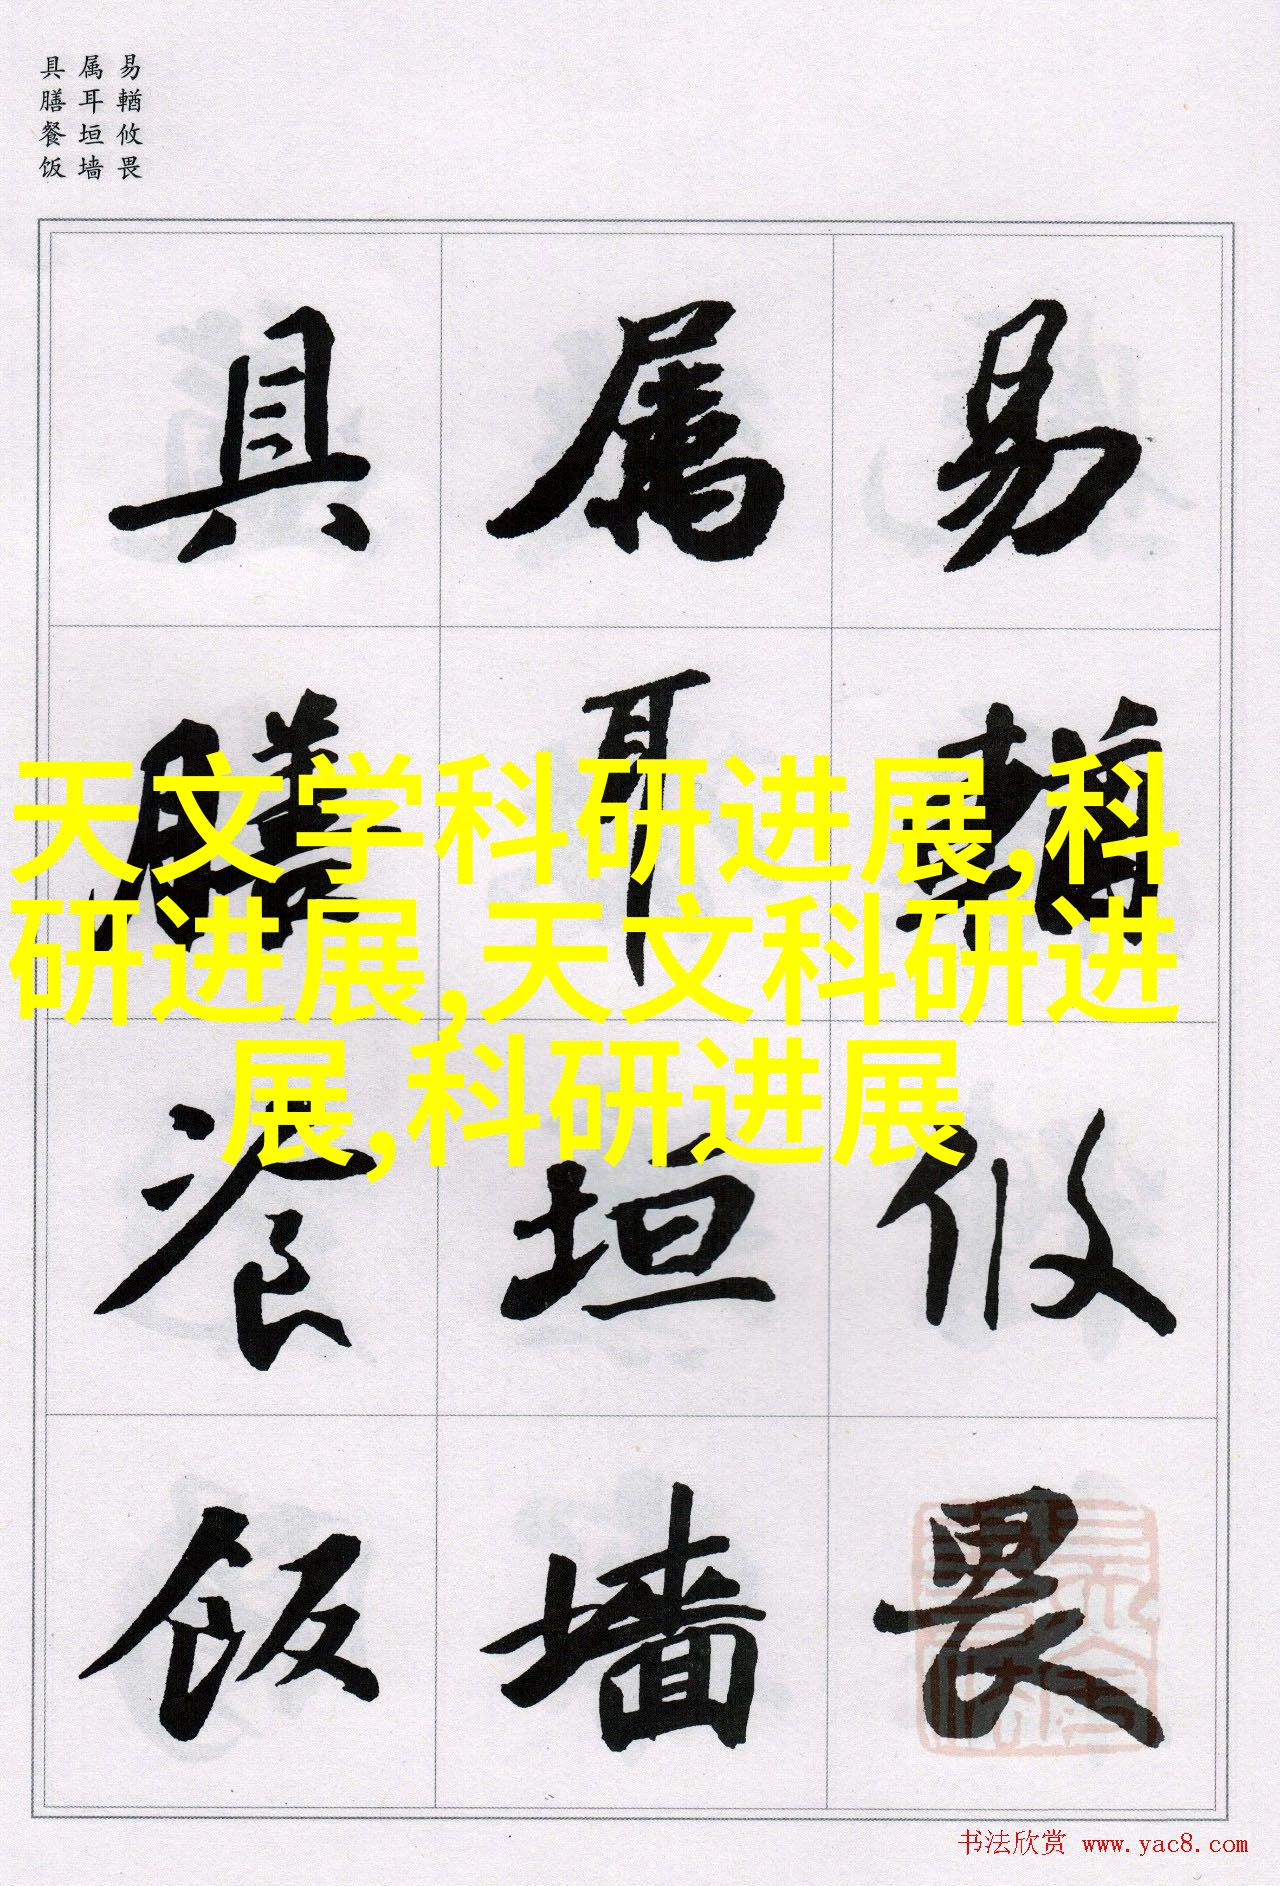 易輶攸畏
属耳垣墙
具膳餐饭
易輶攸畏
属耳垣墙
具膳飡饭
天文学科研进展,科
研进展,天文科研进
展,科研进展
书法欣赏 www.yac8.com